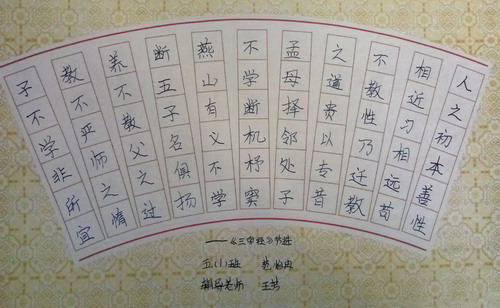 人之初本善性
相近习相远苟
不教性乃迁教
之道贵以专昔
孟母择邻处子
不学断机杼窦
燕山有义不学
断五子名俱扬
养不教父之过
教不严师之惰
子不学非所宜
——《三字经》节选
五(1)班
辅导老师 王芳